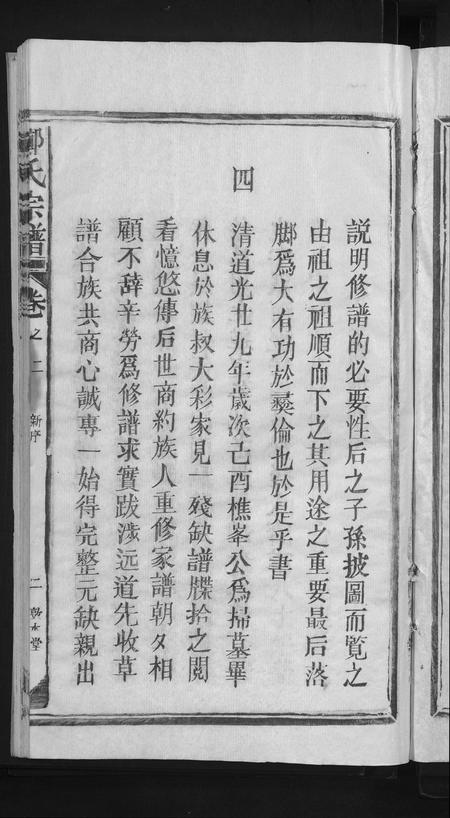 說明修譜的必要性后之子孫披圖而覧之
由祖之祖順而下之其用途之重要最后落
脚爲大有功於彜倫也於是乎書
四
清道光廿九年歲次己酉樵峯公爲掃墓畢
休息於族叔大彩家見一殘缺譜牒拾之閲
看憶悠傳后世商約族人重修家譜朝夕相
顧不辞辛勞爲修譜求實跋涉远道先收草
譜合族共商心誠專一始得完整元缺親出
鄭氏宗譜 卷之二 新序 二